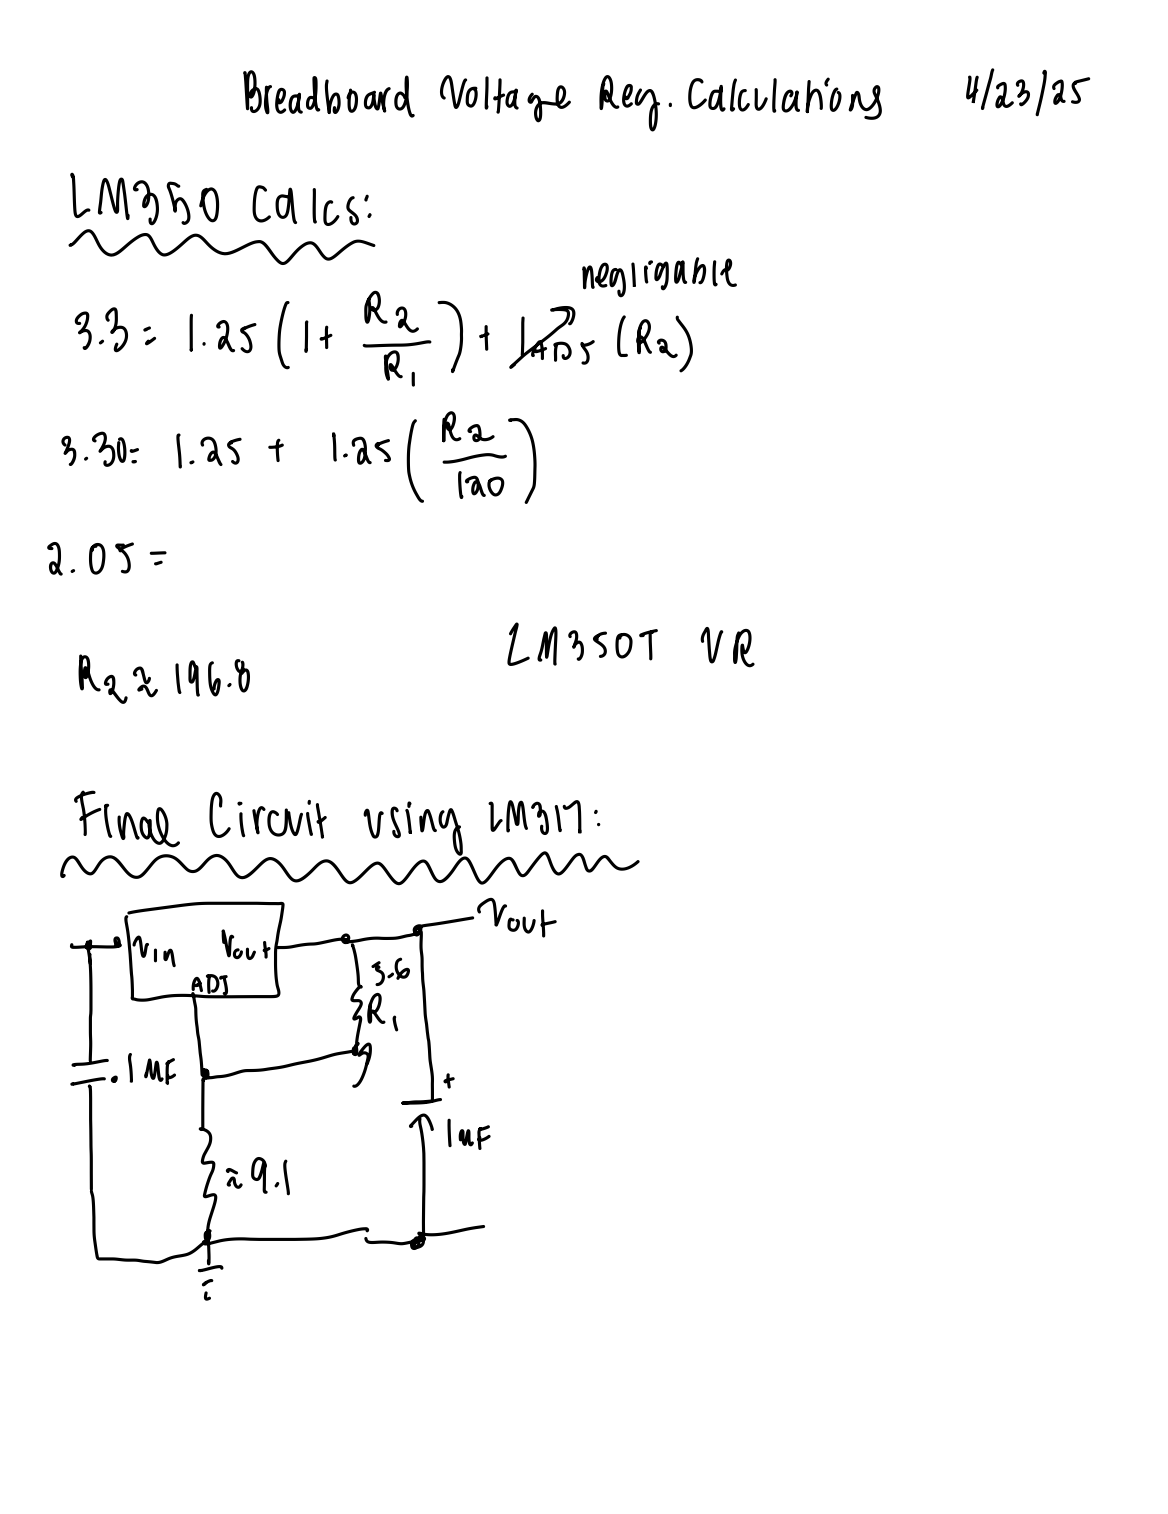 Breadboard Voltage Reg. Calculations 4/23/25
LM350 Calcs:
negligable
3.3 = 1.25 (1 + R2/R1) + IADJ (R2)
3.30 = 1.25 + 1.25 (R2/120)
2.05 =
LM350T VR
R2 ≈ 196.8
Final Circuit using LM317:
Vin Vout
ADJ
Vout
3.6
R1
.1uF
+
1uF
≈ 9.1